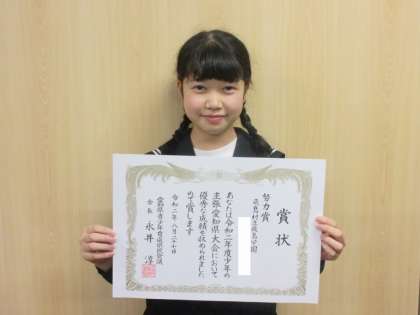 賞状
努力賞
飛島村立飛島学園
あなたは令和二年度少年の
主張愛知県大会において
優秀な成績を収められました
ので賞します
令和二年八月二十七日
愛知県青少年育成県民会議
会長 永井 淳